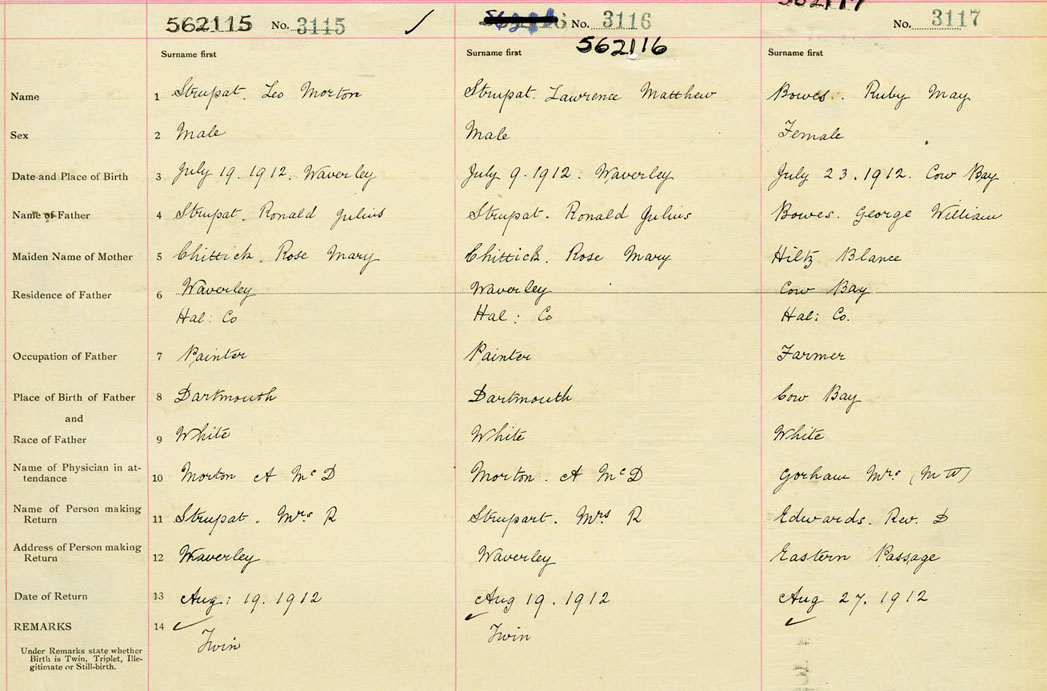 562115 No. 3115 No. 3116 562117 No. 3117
562116
Surname first Surname first Surname first
Name 1 Strupat. Leo Morton Strupat. Lawrence Matthew Bowes. Ruby May
Sex 2 Male Male Female
Date and Place of Birth 3 July 19. 1912. Waverley July 9. 1912. Waverley July 23. 1912. Cow Bay
Name of Father 4 Strupat. Ronald Julius Strupat. Ronald Julius Bowes. George William
Maiden Name of Mother 5 Chittick. Rose Mary Chittick. Rose Mary Hiltz Blance
Residence of Father 6 Waverley Waverley Cow Bay
Hal: Co Hal: Co Hal: Co.
Occupation of Father 7 Painter Painter Farmer
Place of Birth of Father 8 Dartmouth Dartmouth Cow Bay
and
Race of Father 9 White White White
Name of Physician in at-
tendance 10 Morton A McD Morton. A McD Gorham Mrs (M W)
Name of Person making
Return 11 Strupat. Mrs R Strupart. Mrs R Edwards. Rev. D
Address of Person making
Return 12 Waverley Waverley Eastern Passage
Date of Return 13 Aug: 19. 1912 Aug 19. 1912 Aug 27. 1912
REMARKS 14 Twin Twin
Under Remarks state whether
Birth is Twin, Triplet, Ille-
gitimate or Still-birth.